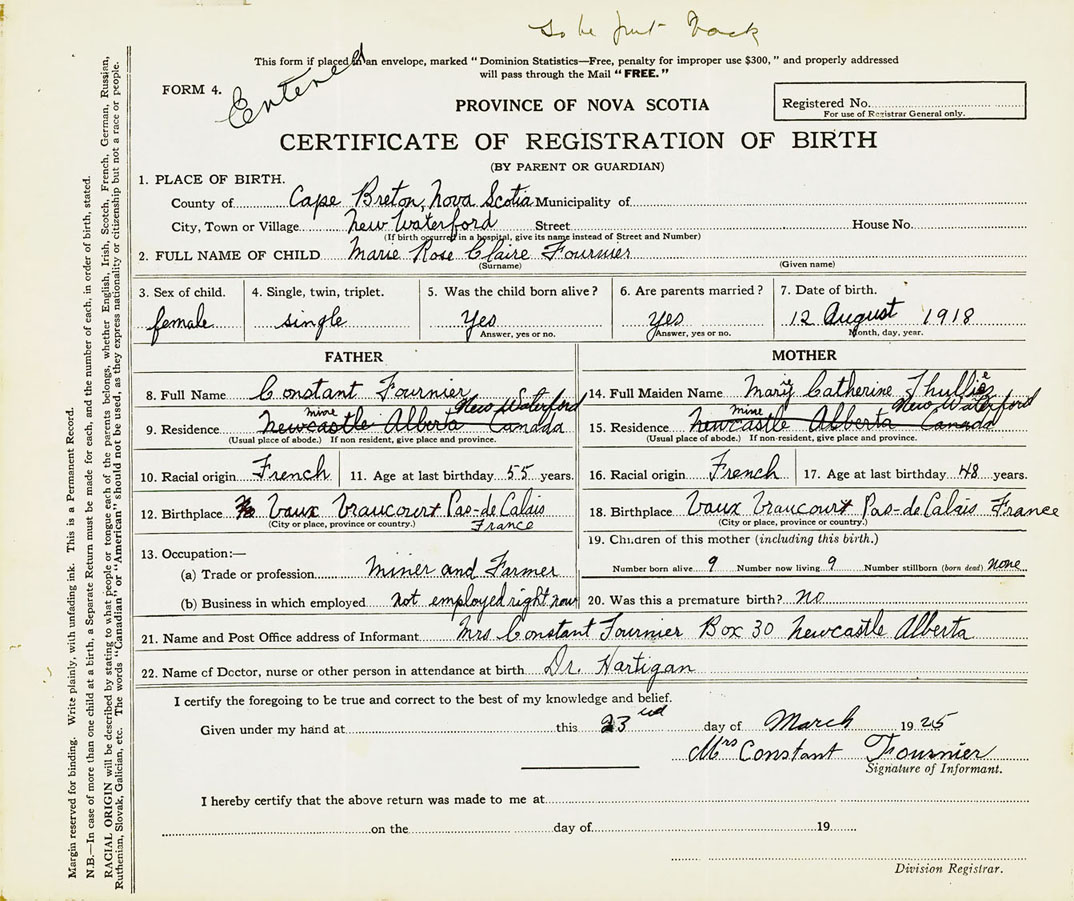 So be put back
This form if placed in an envelope, marked "Dominion Statistics—Free, penalty for improper use $300," and properly addressed
will pass through the Mail "FREE."
FORM 4.
Entered
PROVINCE OF NOVA SCOTIA
Registered No.
For use of Registrar General only.
CERTIFICATE OF REGISTRATION OF BIRTH
(BY PARENT OR GUARDIAN)
1. PLACE OF BIRTH.
County of Cape Breton, Nova Scotia Municipality of
City, Town or Village New Waterford Street House No.
(If birth occurred in a hospital, give its name instead of Street and Number)
2. FULL NAME OF CHILD Marie Rose Claire Fournier
(Surname) (Given name)
3. Sex of child. 4. Single, twin, triplet. 5. Was the child born alive? 6. Are parents married? 7. Date of birth.
female single Yes Yes 12 August 1918
Answer, yes or no. Answer, yes or no. Month, day, year.
FATHER MOTHER
8. Full Name Constant Fournier 14. Full Maiden Name Marie Catherine
New Waterford New Waterford
9. Residence Newcastle mine Alberta Canada 15. Residence Newcastle mine Alberta Canada
(Usual place of abode.) If non resident, give place and province. (Usual place of abode.) If non-resident, give place and province.
10. Racial origin French 11. Age at last birthday 55 years. 16. Racial origin French 17. Age at last birthday 48 years.
12. Birthplace Vaux Vraucourt Pas-de Calais 18. Birthplace Vaux Vraucourt Pas-de Calais France
(City or place, province or country.) France (City or place, province or country.)
13. Occupation:— 19. Children of this mother (including this birth.)
(a) Trade or profession miner and Farmer Number born alive 9 Number now living 9 Number stillborn (born dead) none
(b) Business in which employed not employed right now 20. Was this a premature birth? no
21. Name and Post Office address of Informant Mrs Constant Fournier Box 30 Newcastle Alberta
22. Name of Doctor, nurse or other person in attendance at birth Dr. Hartigan
I certify the foregoing to be true and correct to the best of my knowledge and belief.
Given under my hand at this 23 day of March 1925
Mrs Constant Fournier
Signature of Informant.
I hereby certify that the above return was made to me at
on the day of 19
Division Registrar.
Margin reserved for binding. Write plainly, with unfading ink. This is a Permanent Record.
N.B.—In case of more than one child at a birth, a Separate Return must be made for each, and the number of each, in order of birth, stated.
RACIAL ORIGIN will be described by stating to what people or tongue each of the parents belongs, whether English, Irish, Scotch, French, German, Russian,
Ruthenian, Slovak, Galician, etc. The words "Canadian" or "American" should not be used, as they express nationality or citizenship but not a race or people.